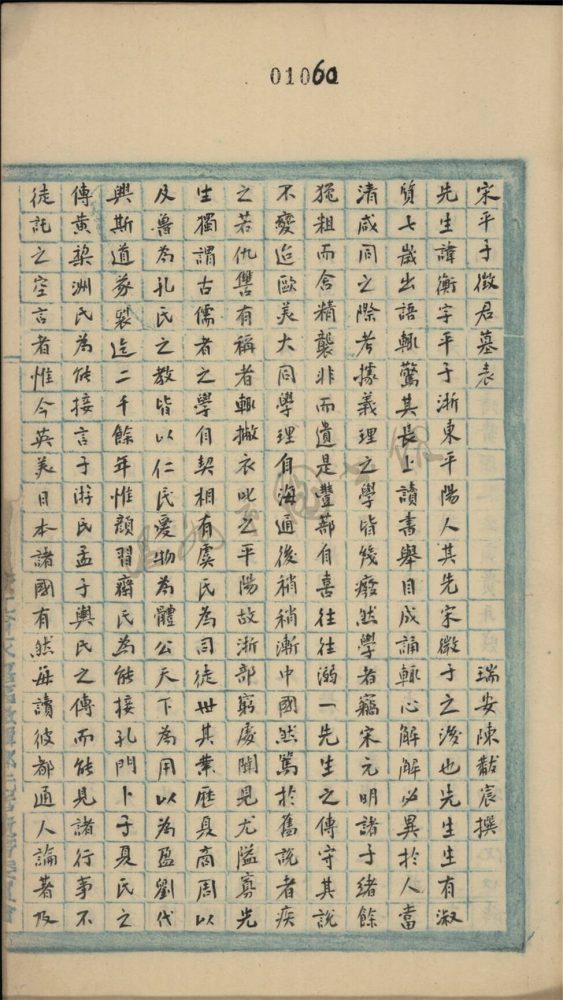 01060
宋平子徵君墓表
瑞安陳黻宸撰
先生諱衡字平子浙東平陽人其先宋微子之後也先生生有淑
質七歲出語輒驚其長上讀書舉目成誦輒心解解必異於人當
清咸同之際考據義理之學皆殘廢然學者竊宋元明諸子緒餘
獵粗而舍精襲非而遺是豐蔀自喜往往溺一先生之傳守其說
不變迨歐美大同學理自海通後稍稍漸中國然篤於舊說者疾
之若仇讐有稱者輒撇衣叱之平陽故浙部窮處聞見尤隘寡先
生獨謂古儒者之學自契相有虞氏為司徒世其業歷夏商周以
及魯為孔氏之教皆以仁民愛物為體公天下為用以為盈劉代
興斯道蒙裂迄二千餘年惟顏習齋氏為能接孔門卜子夏氏之
傳黃梨洲氏為能接言子游氏孟子輿氏之傳而能見諸行事不
徒託之空言者惟今英美日本諸國有然每讀彼都通人論著及